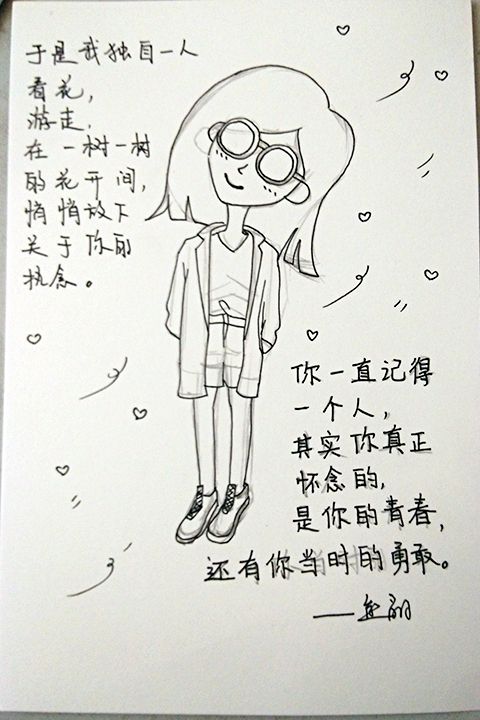 于是我独自一人
看花，
游走，
在一树一树
的花开间，
悄悄放下
关于你的
执念。
你一直记得
一个人，
其实你真正
怀念的，
是你的青春，
还有你当时的勇敢。